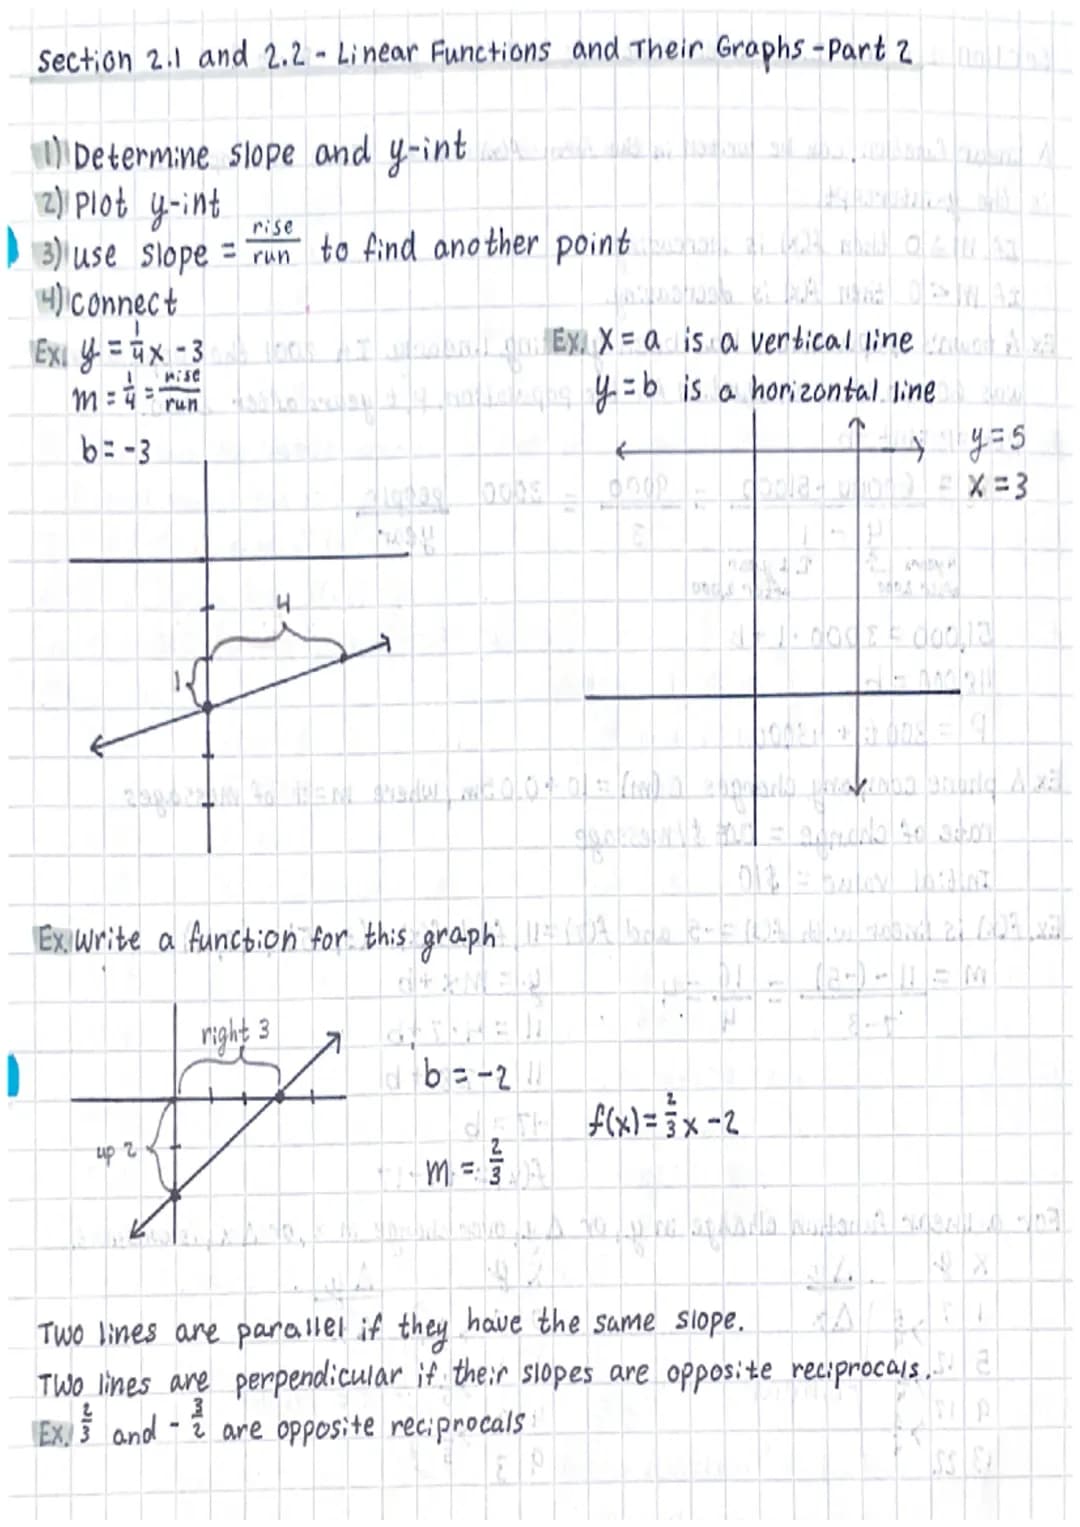 Section 2.1 and 2.2 - Linear Functions and Their Graphs - Part 2
1) Determine slope and y-int
2) Plot y-int
3) use slope = rise/run to find another point
4) connect
Ex. y = 1/4 x - 3
m = 1/4 = rise/run
b = -3
4
1
Ex. x = a is a vertical line
y = b is a horizontal line
y = 5
x = 3
Ex. Write a function for this graph
right 3
up 2
b = -2
m = 2/3
f(x) = 2/3 x - 2
Two lines are parallel if they have the same slope.
Two lines are perpendicular if their slopes are opposite reciprocals.
Ex. 2/3 and - 3/2 are opposite reciprocals